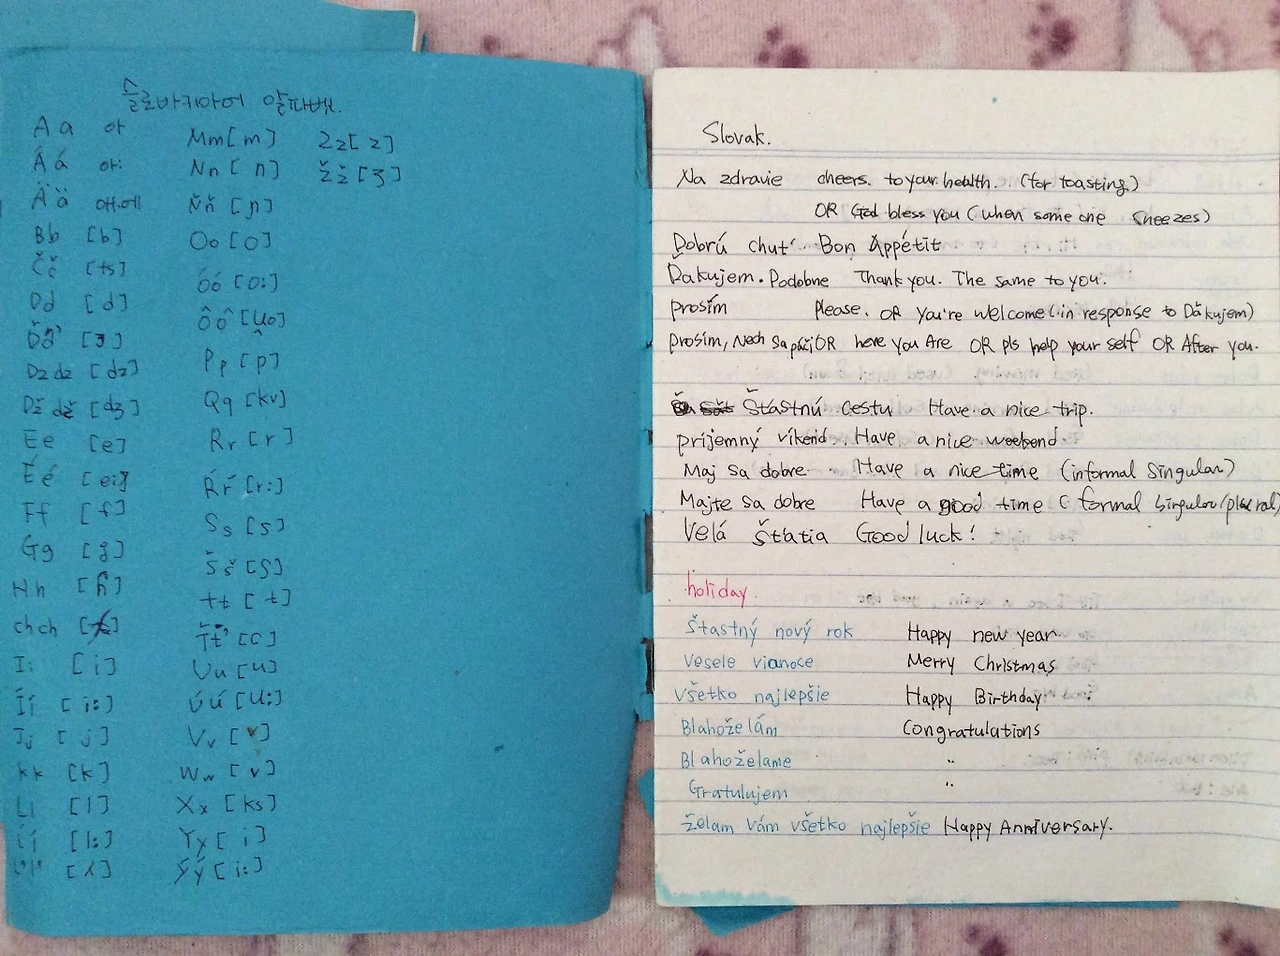 슬로바키아어 알파벳.
A a 아
Á á 아:
Ä ä 애.에
Bb [b]
Čč [ts]
Dd [d]
Ďď [ɟ]
Dz dz [dz]
Dž dž [dʒ]
Ee [e]
Éé [ei]
Ff [f]
Gg [g]
Hh [ɦ]
chch
Ii [i]
Íí [i:]
Jj [j]
kk [k]
Ll [l]
Ĺĺ [l:]
[ʎ]
Mm [m]
Nn [n]
Ňň [ɲ]
Oo [o]
Óó [o:]
Ôô [uo]
Pp [p]
Qq [kv]
Rr [r]
Ŕŕ [r:]
Ss [s]
Šš [ʃ]
tt [t]
Ťť [c]
Uu [u]
Úú [u:]
Vv [v]
Ww [v]
Xx [ks]
Yy [i]
Ýý [i:]
Zz [z]
Žž [ʒ]
Slovak.
Na zdravie cheers. to your health. (for toasting)
OR God bless you (when some one sneezes)
Dobrú chuť Bon Appétit
Ďakujem. Podobne Thank you. The same to you.
prosím Please. OR you're welcome (in response to Dǎkujem)
prosím, Nech sa páči OR here you Are OR pls help your self OR After you.
Šťastnú cestu Have a nice trip.
príjemný víkend. Have a nice weekend.
Maj sa dobre Have a nice time (informal Singular)
Majte sa dobre Have a good time (formal Singular/plural)
Velá šťatia Good luck!
holiday.
Štastný nový rok Happy new year
Vesele vianoce Merry Christmas
Všetko najlepšie Happy Birthday
Blahoželám Congratulations
Blahoželame "
Gratulujem "
želam Vám všetko najlepšie Happy Anniversary.